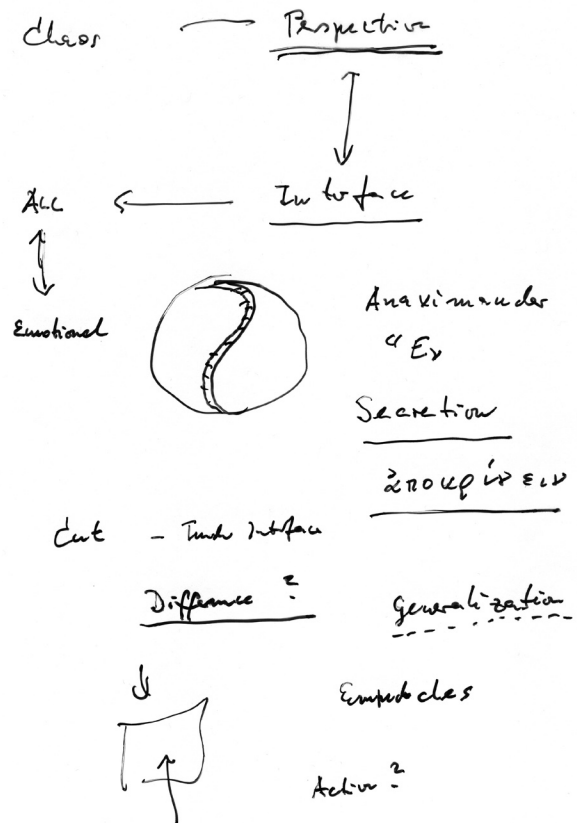 Chaos — Perspective
ALL ← Interface
Emotional
Anaximander
"Ἓν
Secretion
ἀποκρίνειν
Cut – Interface
Difference ?
Generalization
Empedocles
Action ?